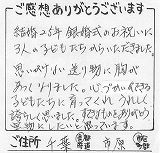 ご感想ありがとうございます
結婚25年 銀婚式のお祝いに
3人の子どもたちからいただきました。
思いがけない送り物に胸が
あつくなりました。心づかいできる
子どもたちに育ってくれ うれしく
誇らしく思いました。
宝物にしたいと思っています。
ご住所 千葉 市原